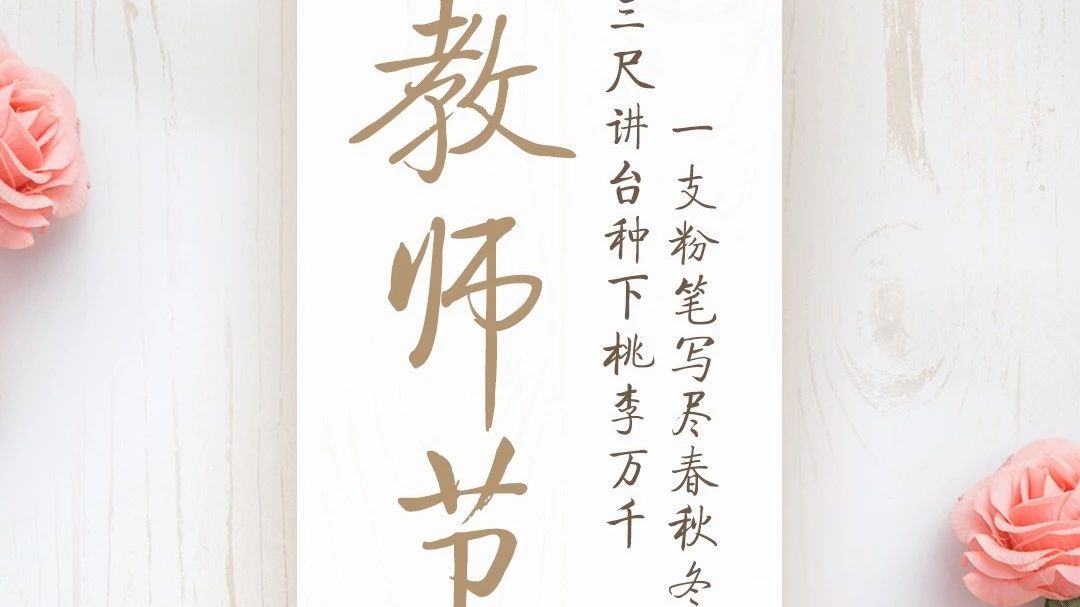 一支粉笔写尽春秋冬
三尺讲台种下桃李万千
教师节